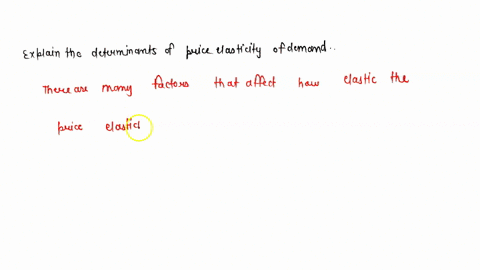 Explain the determinants of price elasticity of demand..
There are many factors that affect how elastic the
price elastici